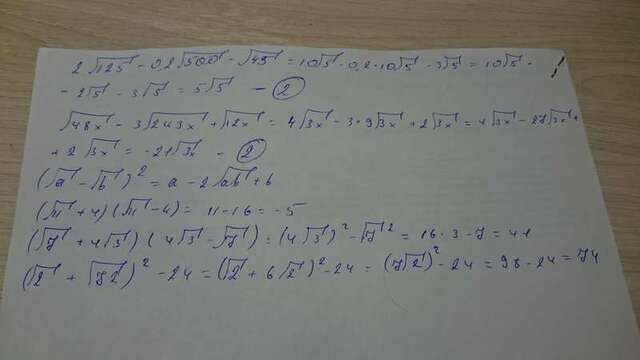 2√125 - 0,2√500 - √45 = 10√5 - 0,2·10√5 - 3√5 = 10√5 -
- 2√5 - 3√5 = 5√5 - 2
√48x - 3√243x + √12x = 4√3x - 3·9√3x + 2√3x = 4√3x - 27√3x +
+ 2√3x = -21√3x - 2
(√a - √b)² = a - 2√ab + b
(√11 + 4)(√11 - 4) = 11 - 16 = -5
(√7 + 4√3)(4√3 - √7) = (4√3)² - √7² = 16·3 - 7 = 41
(√2 + √72)² - 24 = (√2 + 6√2)² - 24 = (7√2)² - 24 = 98 - 24 = 74